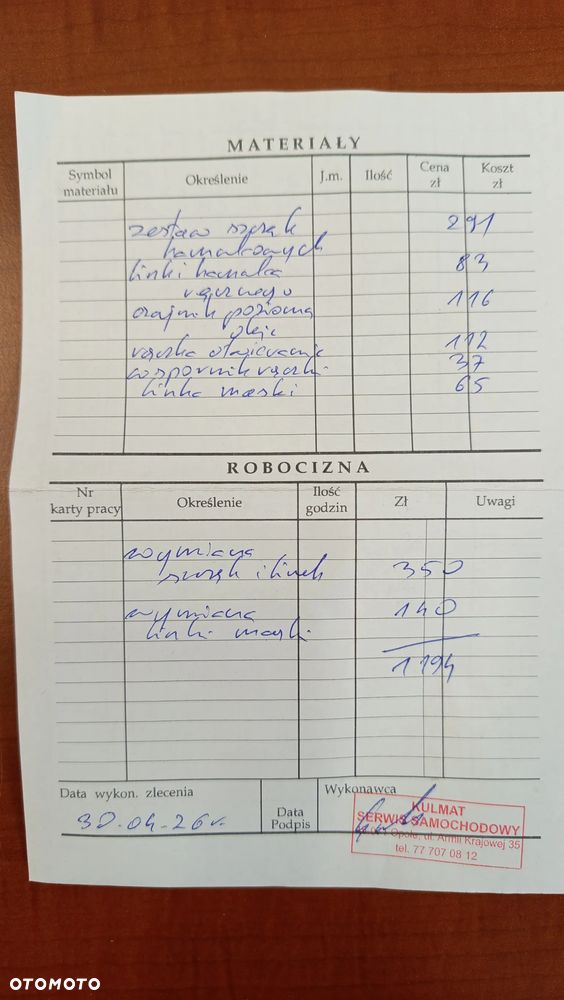 MATERIAŁY
Symbol materiału Określenie J.m. Ilość Cena zł Koszt zł
zestaw szczęk 291
hamulcowych
linki hamulca 83
ręcznego
czujnik poziomu 116
oleju
rączka otwierania 112
wspornik rączki 37
linka maski 65
ROBOCIZNA
Nr karty pracy Określenie Ilość godzin Zł Uwagi
wymiana
szczęk i linek 350
wymiana 140
linki maski
1194
Data wykon. zlecenia Data Podpis Wykonawca
30.04.26r.
KULMAT
SERWIS SAMOCHODOWY
Opole, ul. Armii Krajowej 35
tel. 77 707 08 12
OTOMOTO